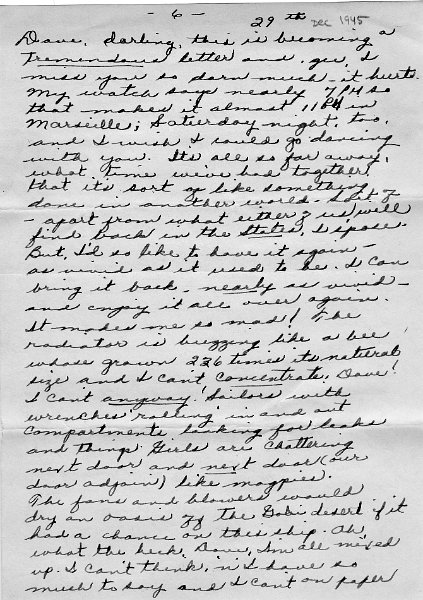 - 6 -
29th Dec 1945
Dave, darling, this is becoming a
tremendous letter and, gee, I
miss you so darn much - it hurts.
My watch says nearly 7 PM so
that makes it almost 11 PM in
Marseille; Saturday night, too,
and I wish I could go dancing
with you. It's all so far away,
what time we've had together,
that it's sort of like something
done in another world - sort of
- apart from what either of us will
find back in the States, I s'pose.
But, I'd so like to have it again -
as vivid as it used to be. I can
bring it back - nearly as vivid -
and enjoy it all over again.
It makes me so mad! The
radiator is buzzing like a bee
whose grown 226 times its natural
size and I can't concentrate, Dave!
I can't anyway! Sailors with
wrenches roaming in and out
compartments looking for leaks
and things. Girls are chattering
next door and next door (our
door adjoin) like magpies.
The fans and blowers would
dry an oasis of the Gobi desert if it
had a chance on this ship. Oh,
what the heck, Dave, I'm all mixed
up. I can't think, 'n I have so
much to say and I can't on paper